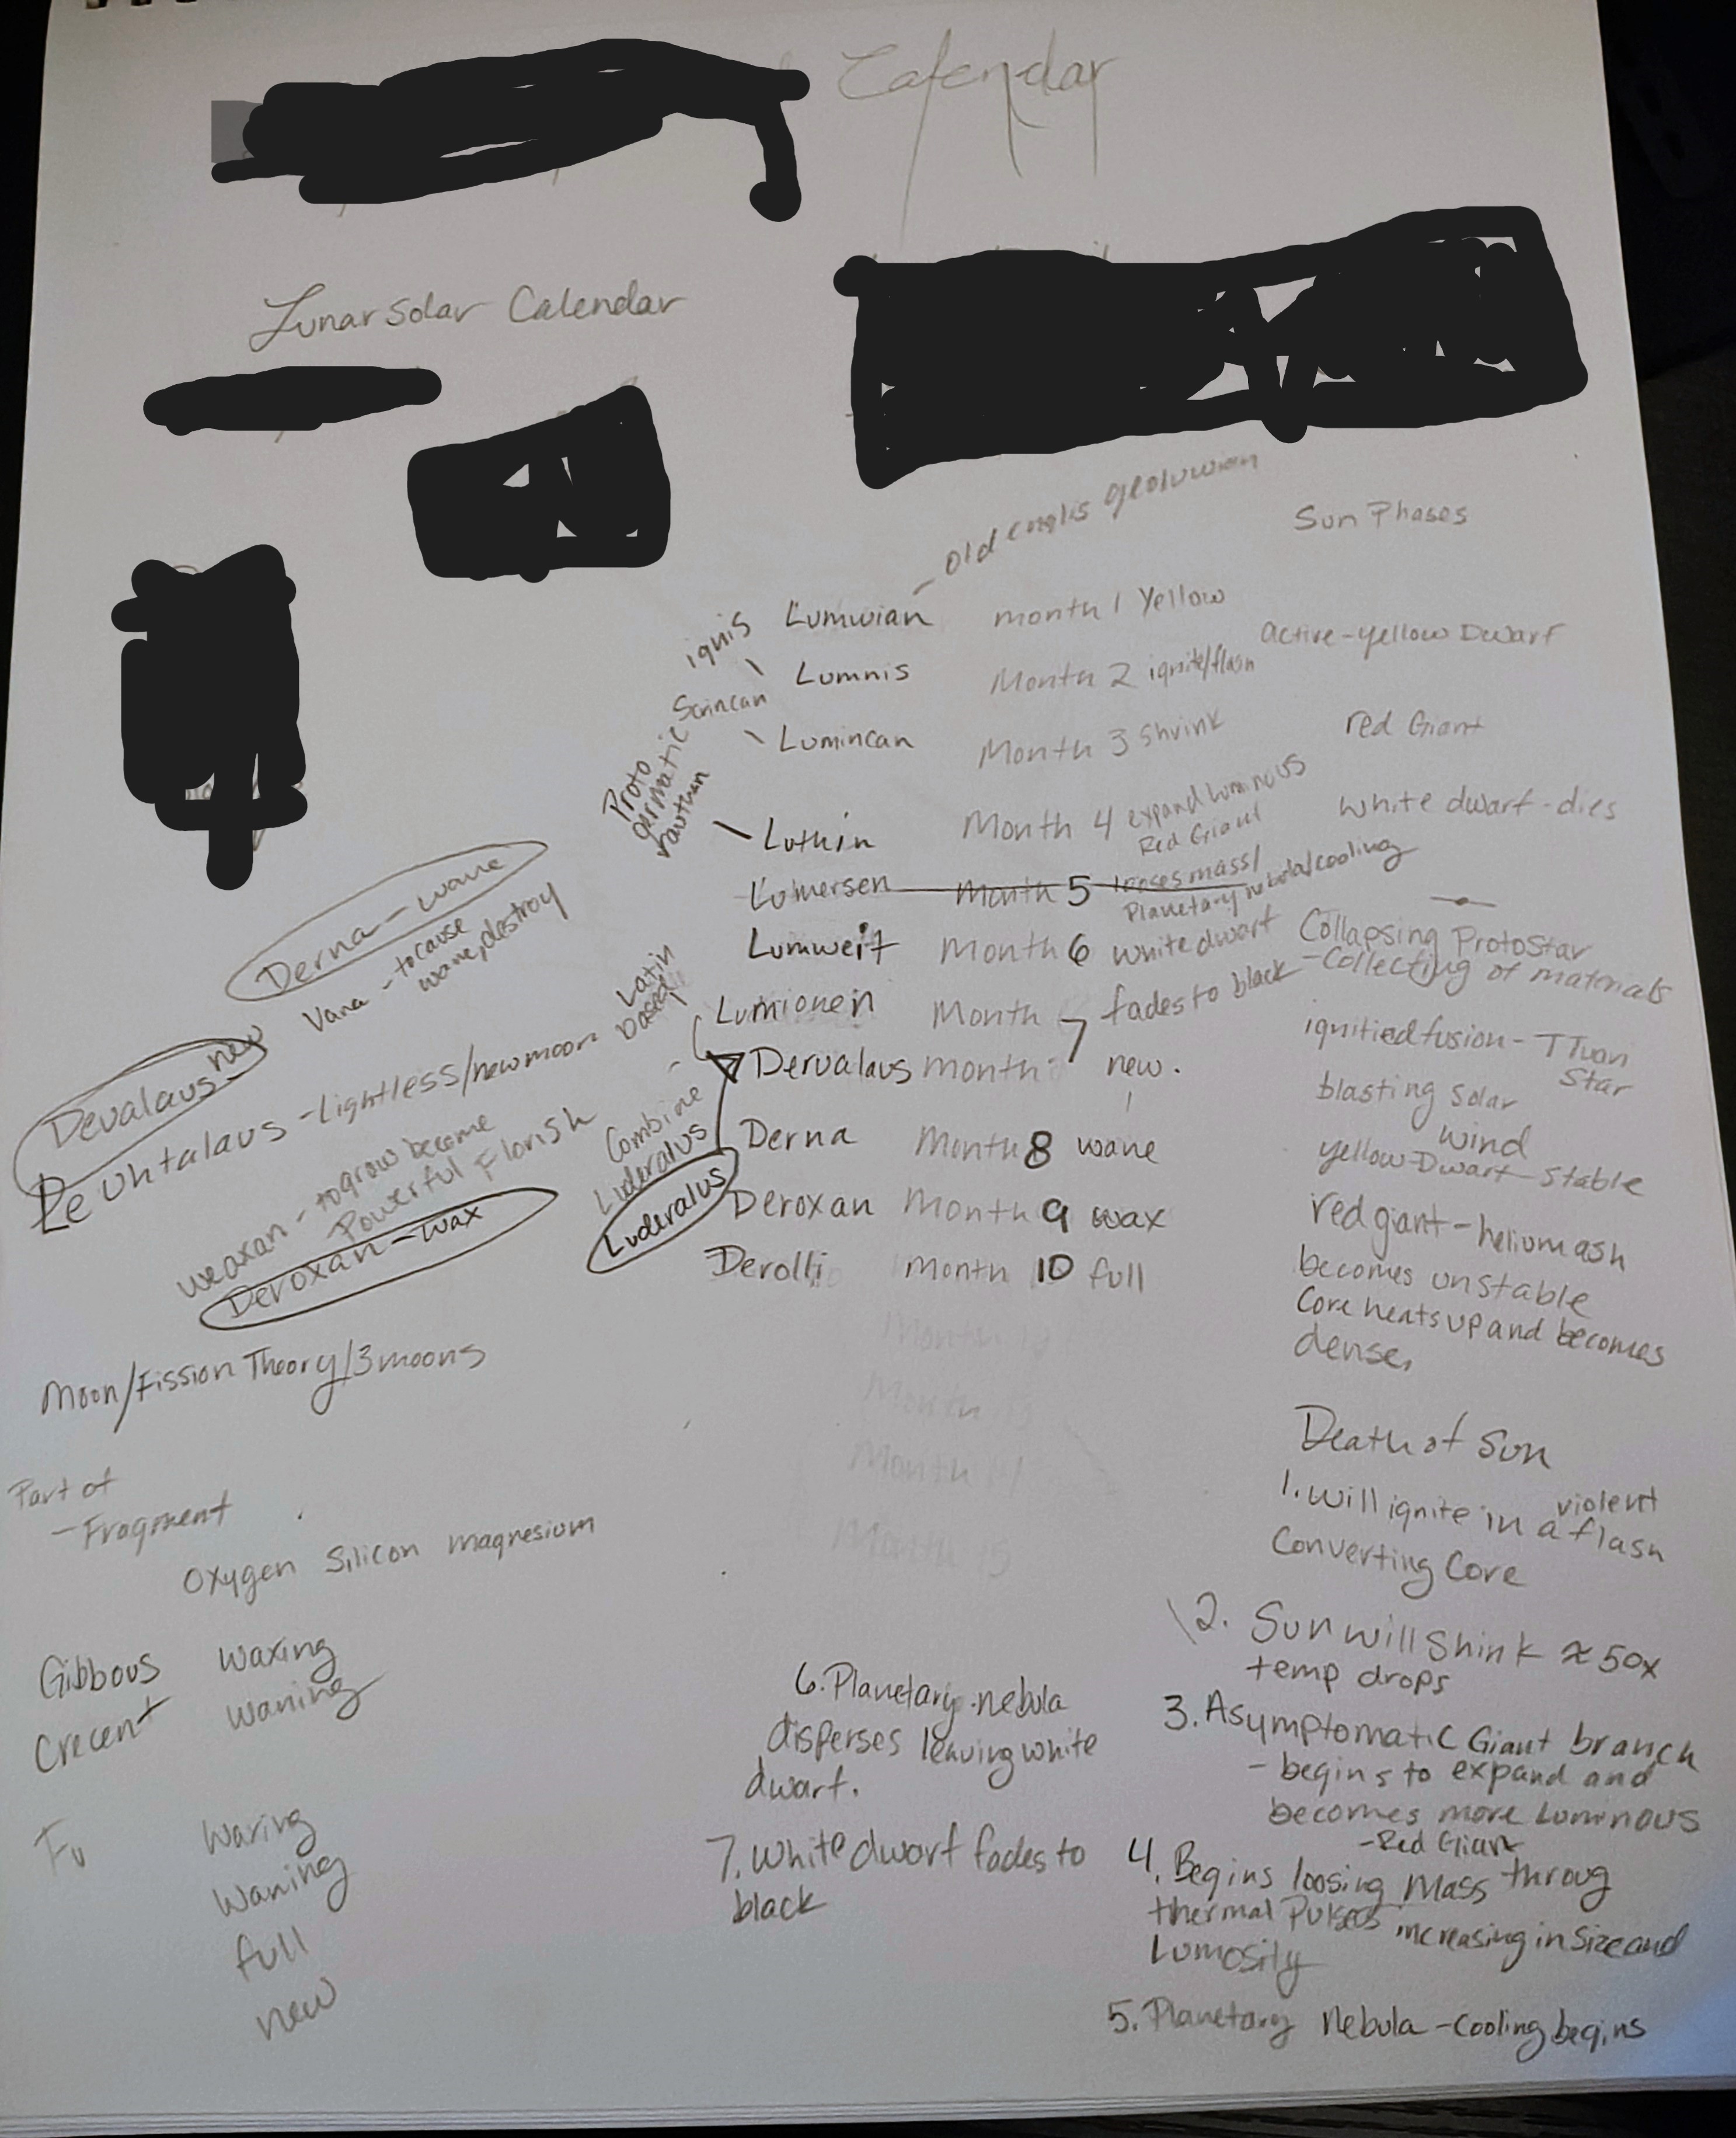 Calendar
Lunar Solar Calendar
Old englis geoluwian
Sun Phases
ignis
Lumwian month 1 Yellow
Active-yellow Dwarf
Lumnis Month 2 ignite/flash
Scrincan
Lumincan Month 3 Shrink
red Giant
Proto
germatic
Luthin Month 4 expand luminous
Red Giant
White dwarf-dies
Lumersen Month 5 looses mass/
Planetary nebula/cooling
Lumweit Month 6 white dwarf
Lumionen Month 7 fades to black
Dervalaus month 7 new.
Derna Month 8 wane
Deroxan Month 9 wax
Derolli month 10 full
Month
Month
Month
Month 15
Derna - wane
Vana - to cause
wane, destroy
Devalaus new
Leuhtalaus - Lightless/new moon
Latin
based
weaxan - to grow become
Powerful Florish
Deroxan - wax
Combine
Luderalus
Luderalus
Moon/Fission Theory/3 moons
Part of
- Fragment
Oxygen Silicon magnesium
Gibbous Waxing
Crecent Waning
Fu
Waxing
Waning
full
new
Collapsing ProtoStar
- Collecting of materials
ignitied fusion - T Tuari
Star
blasting Solar
wind
yellow Dwarf stable
red giant - helium ash
becomes unstable
Core heats up and becomes
dense,
Death of Sun
1. Will ignite in a violent flash
Converting Core
2. Sun will Shink ≈ 50x
temp drops
3. Asymptomatic Giant branch
- begins to expand and
becomes more Luminous
- Red Giant
4. Begins loosing Mass throug
thermal Pulses increasing in Size and
Lumosity
5. Planetary Nebula - cooling begins
6. Planetary nebula
disperses leaving white
dwarf.
7. White dwarf fades to
black